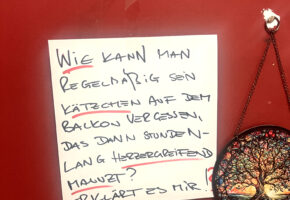 WIE KANN MAN
REGELMÄßIG SEIN
KÄTZCHEN AUF DEM
BALKON VERGESSEN,
DAS DANN STUNDEN-
LANG HERZERGREIFEND
MAUNZT?
ERKLÄRT ES MIR!